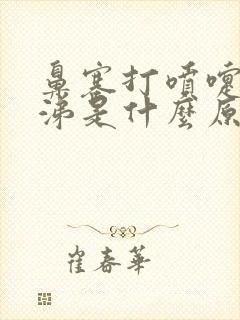 鼻塞打噴嚏
涕是什麼原
崔春華